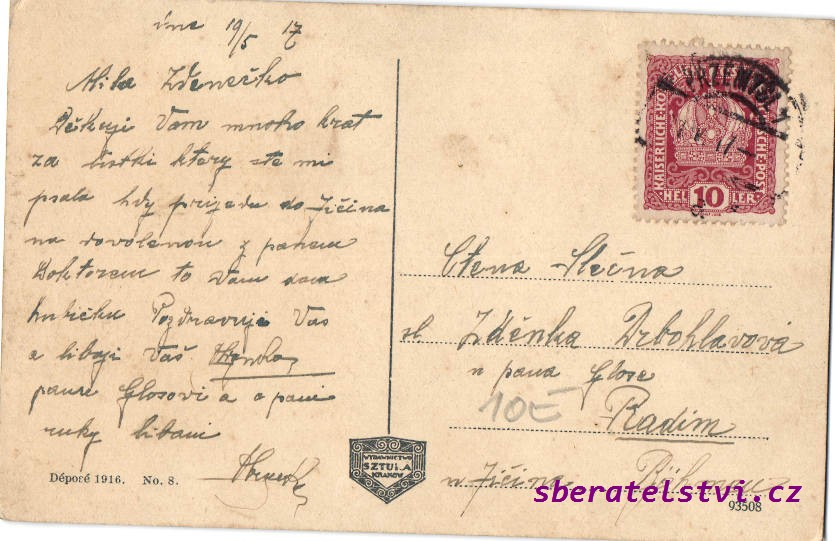 dne 19/5 17
Mila Zdenečko
Děkuji Vam mnoho krat
za listki ktery ste mi
psala hdy prijedu do Jičina
na dovolenou z panem
Doktorem to Vam dam
hubičku Pozdravuji Vas
a libaji Vaš
pane Glosovi a o pani
ruky libani
Déposé 1916. No. 8.
WYDAWNICTWO
SZTUKA
KRAKÓW
PRZEMYŚL
KAISERLICHE KÖNIGLICHE ÖSTERREICHISCHE POST
HELLER
10
Ctena Slečna
sl. Zděnka Drbohlavová
u pana Glose
10E
Radim
u Jičina Böhmen
93508
sberatelstvi.cz